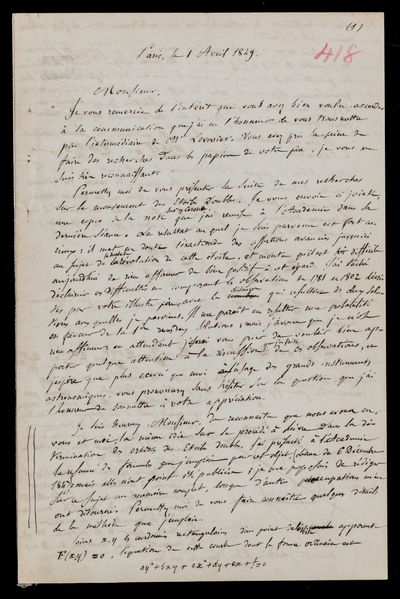 (1)
418
Paris, le 1 Avril 1849.
Monsieur,
Je vous remercie de l'intérêt que vous avez bien voulu accorder
à la communication que j'ai eu l'honneur de vous transmettre
par l'intermédiaire de Mr Leverrier. Vous avez pris la peine de
faire des recherches dans les papiers de votre père, je vous en
suis très reconnaissant.
Permettez moi de vous présenter la suite de mes recherches
sur le mouvement des Étoiles doubles. Je vous envoie ci jointe,
une copie de la note que j'ai remise à l'Académie dans la
dernière séance. Le résultat auquel je suis parvenu est fort
il met en doute l'exactitude des assertions avancées jusqu'ici
au sujet de la révolution de cette étoile, et montre qu'il est difficile
aujourd'hui de rien affirmer de bien positif à cet égard. J'ai tâché
d'éclaircir ces difficultés en comparant les observations de 1781 et 1802
par votre illustre père, avec les qui résultent des deux solu-
tions auxquelles je parviens. Il me paraît en résulter une probabilité
en faveur de la 1ère des deux solutions; mais j'avoue que je n'ose
rien affirmer; en attendant vous prier de vouloir bien ap-
porter quelque attention à la discussion de ces observations, et
j'espère que plus exercé que moi à l'usage des grands instruments
astronomiques, vous prononcerez sans hésiter sur la question que j'ai
l'honneur de soumettre à votre appréciation.
Je suis heureux, Monsieur, de reconnaître que nous avons eu,
vous et moi la même idée sur le procédé à suivre dans la dé-
termination des orbites des Étoiles doubles. J'ai présenté à l'Académie
le résumé des formules que j'emploie pour cet objet, (séance du Décembre
mais elles n'ont point été publiées; je me proposais de rédiger
sur ce sujet un mémoire complet, lorsque d'autres occupations m'en
ont détourné. Permettez moi de vous faire connaître quelques détails
de la méthode que j'emploie.
Soient x, y les coordonnées rectangulaires d'un point de l'orbite apparente
F(x,y) = 0, l'équation de cette courbe dont la forme ordinaire est
ay² + bxy + cx² + dy + ex + f = 0